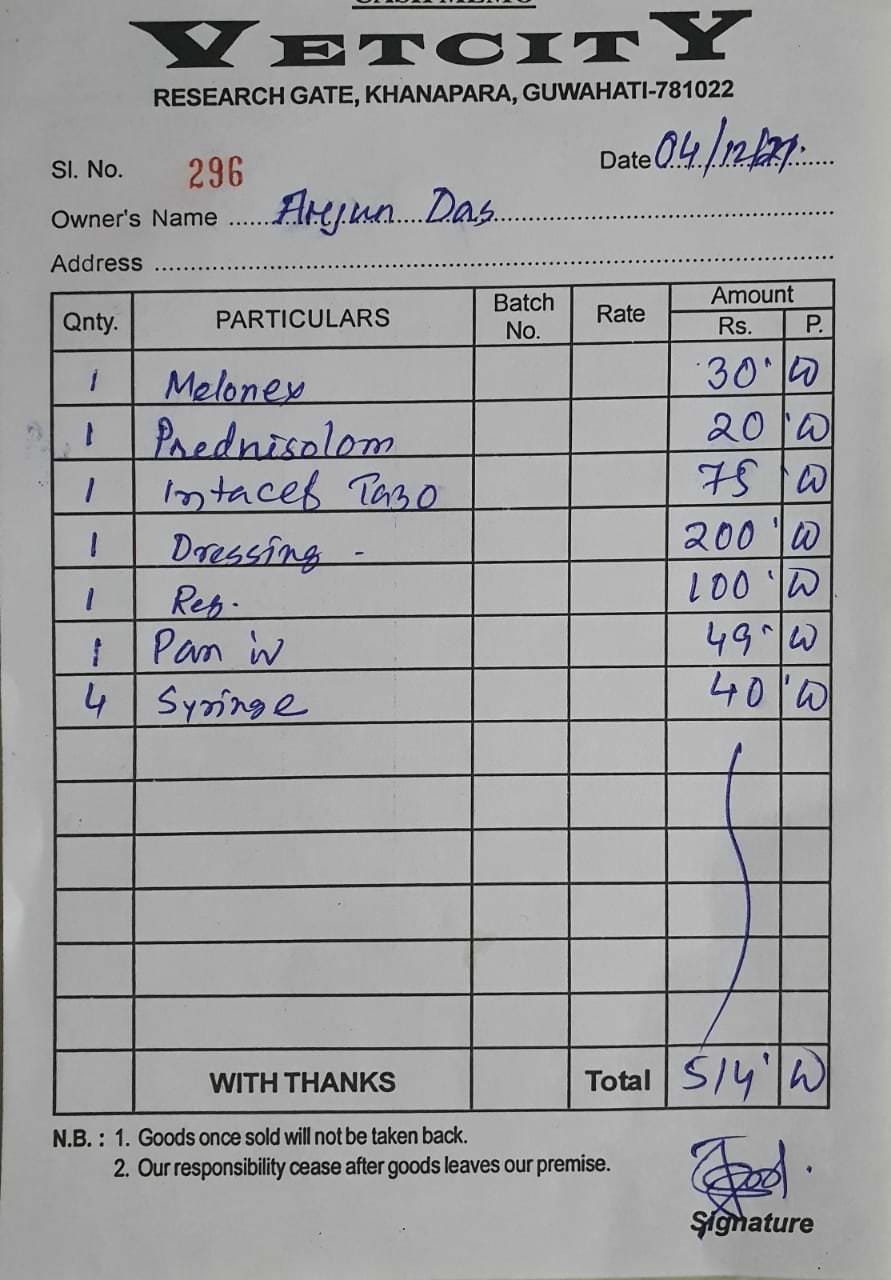 CASH MEMO
VETCITY
RESEARCH GATE, KHANAPARA, GUWAHATI-781022
Sl. No. 296 Date 04/12/
Owner's Name Arejun Das
Address
Qnty. PARTICULARS Batch No. Rate Amount Rs. P.
1 Melonex 30 00
1 Prednisolom 20 00
1 Intacef Tazo 75 00
1 Dressing - 200 00
1 100 00
1 Pan iv 49 00
4 Syringe 40 00
WITH THANKS Total 514 00
N.B. : 1. Goods once sold will not be taken back.
2. Our responsibility cease after goods leaves our premise.
Signature